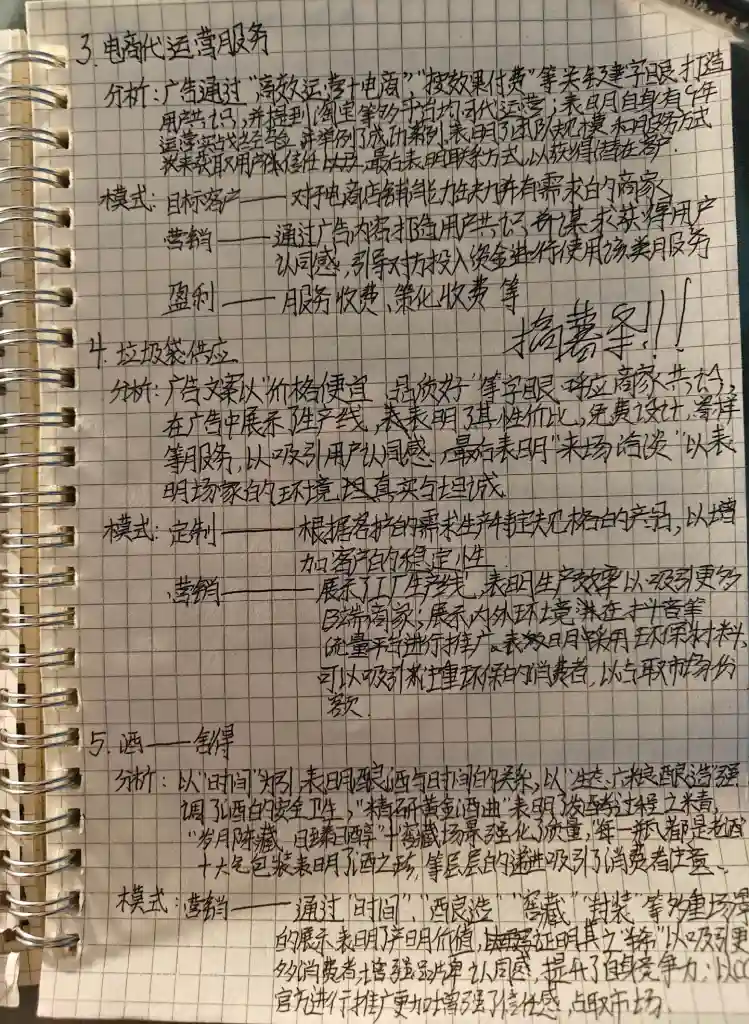 3. 电商代运营服务
分析：广告通过“高效运营+电商”，“按效果付费”等关键字眼，打造
用户共识，并提到淘宝等多平台均可代运营；表明自身有4年
运营实战经验，并举例了成功案例，表明了团队规模和服务方式
来获取用户信任以及，最后表明联系方式，以获得潜在客户.
模式：目标客户——对于电商店铺能力缺失并有需求的商家
营销——通过广告内容打造用户共识，并谋求获得用户
认同感，引导对方投入资金进行使用该类服务
盈利——服务收费、策化收费等
搞薯条!!!
4. 垃圾袋供应
分析：广告文案以“价格便宜 品质好”等字眼，呼应商家共识，
在广告中展示了生产线，表明了其性价比，免费设计，寄样
等服务，以吸引用户认同感，最后表明“来场洽谈”以表
明场家的环境，真实与坦诚.
模式：定制——根据客户的需求生产特定规格的产品，以增
加客户的稳定性
营销——展示了工厂生产线，表明生产效率以吸引更多
B端商家；展示内外环境，并在抖音等
流量平台进行推广。表明采用环保材料，
可以吸引来注重环保的消费者，以占取市场份
额.
5. 酒——舍得
分析：以“时间”为引，表明酿酒与时间的关系，以“生态、粮酿造”强
调了酒的安全卫生，“精研黄金酒曲”表明了发酵过程之精，
“岁月陈藏，日臻醇”+窖藏场景强化了质量，“每一瓶都是老酒”
+大气包装表明了酒之珍，等层层的递进吸引了消费者注意.
模式：营销——通过“时间”，“酿造”“窖藏”“封装”等多重场景
的展示表明产品价值，证明其之“稀”以吸引更
多消费者，增强品牌认同感，提升了自身竞争力；以CC
官方进行推广更加增强了信任感，占取市场.